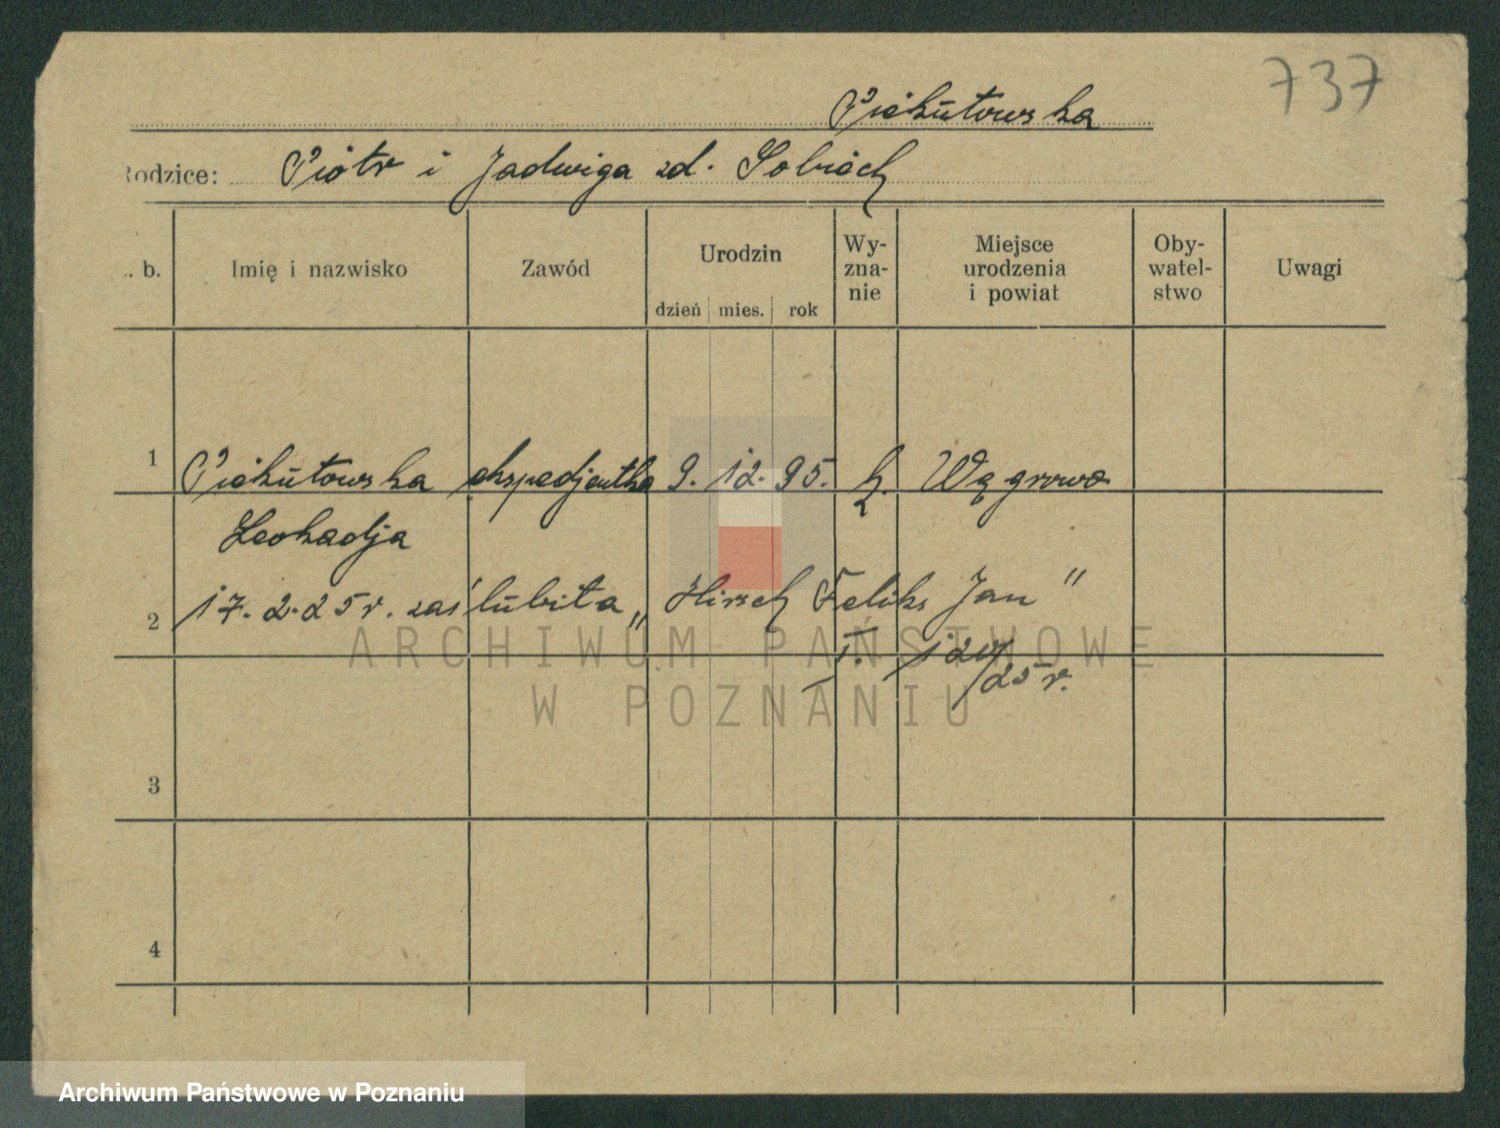 737
Piekutowska
Rodzice: Piotr i Jadwiga zd. Sobiech
L. b. Imię i nazwisko Zawód Urodzin dzień mies. rok Wy-zna-nie Miejsce urodzenia i powiat Oby-watel-stwo Uwagi
1 Piekutowska ekspedjentka 9. 12. 95. k. Wągrowo
Leokadja
2 17. 2. 25 r. zaślubiła „Hirsch Feliks Jan"
I. 120/25 r.
ARCHIWUM PAŃSTWOWE
W POZNANIU
3
4
Archiwum Państwowe w Poznaniu